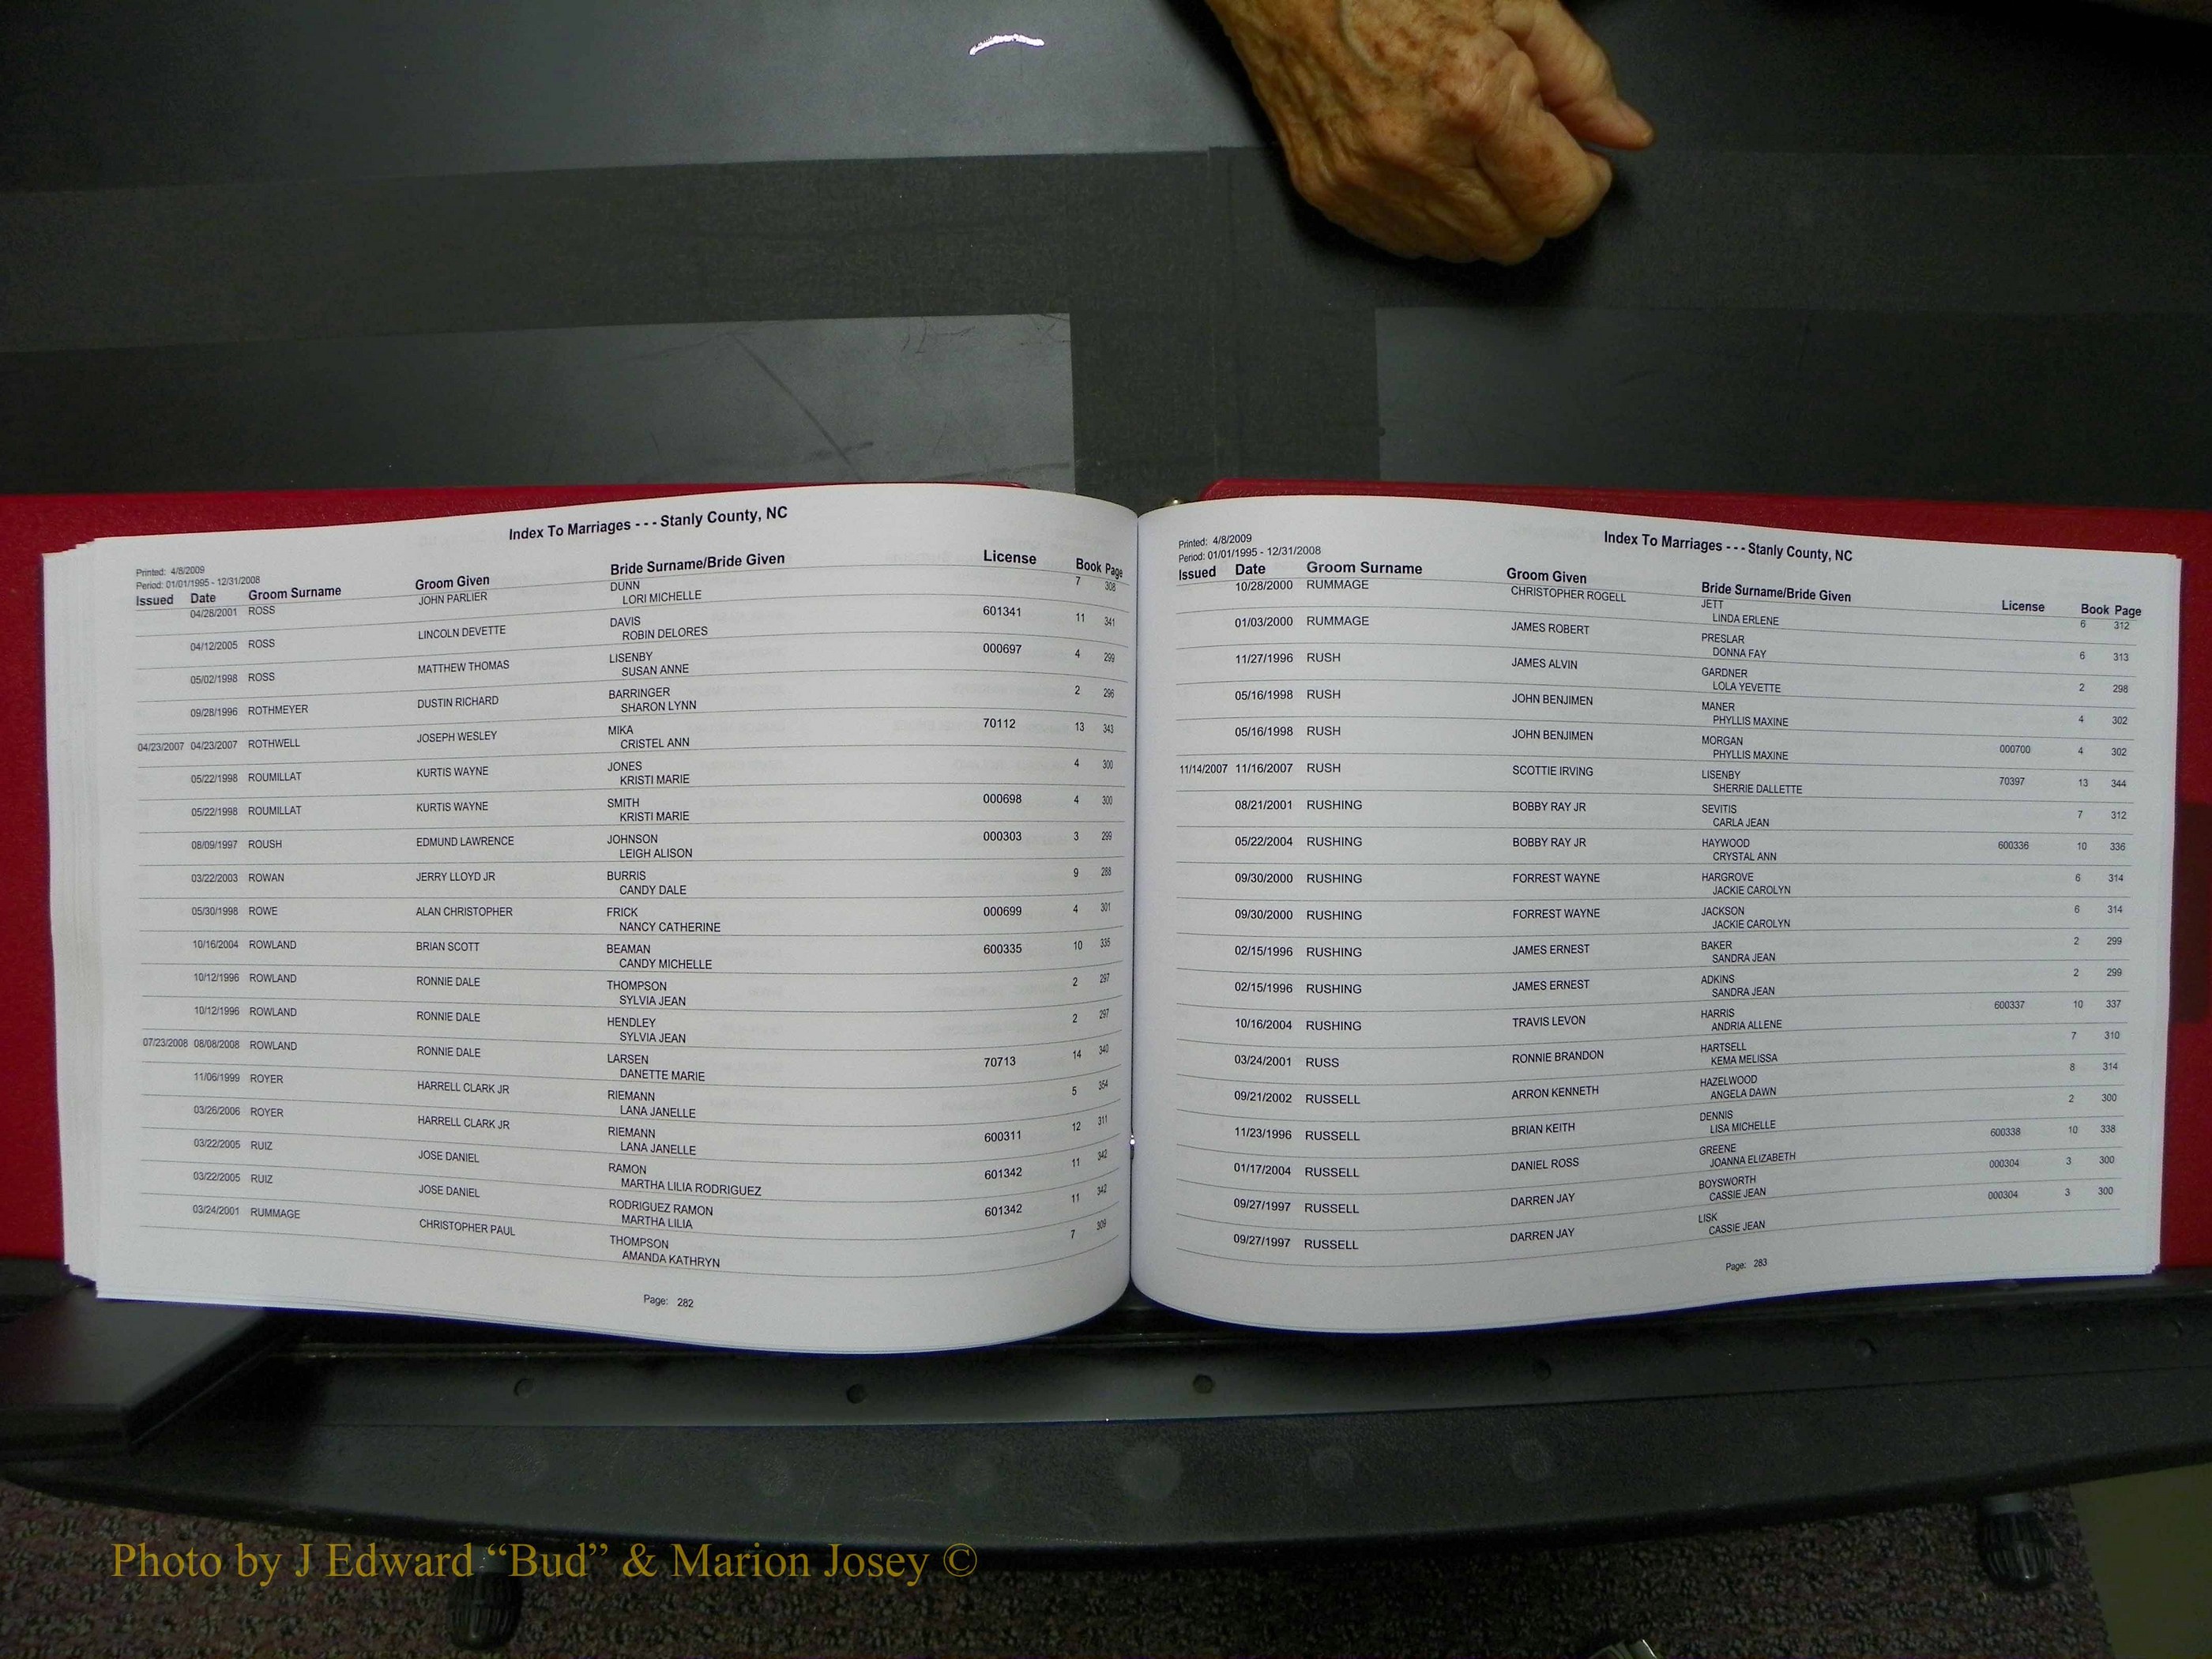 Index To Marriages - - - Stanly County, NC
Printed: 4/8/2009
Period: 01/01/1995 - 12/31/2008
Issued Date Groom Surname Groom Given Bride Surname/Bride Given License Book Page
04/28/2001 ROSS JOHN PARLIER DUNN 7 308
LORI MICHELLE
04/12/2005 ROSS LINCOLN DEVETTE DAVIS 601341 11 341
ROBIN DELORES
05/02/1998 ROSS MATTHEW THOMAS LISENBY 000697 4 299
SUSAN ANNE
09/28/1996 ROTHMEYER DUSTIN RICHARD BARRINGER 2 296
SHARON LYNN
04/23/2007 04/23/2007 ROTHWELL JOSEPH WESLEY MIKA 70112 13 343
CRISTEL ANN
05/22/1998 ROUMILLAT KURTIS WAYNE JONES 4 300
KRISTI MARIE
05/22/1998 ROUMILLAT KURTIS WAYNE SMITH 000698 4 300
KRISTI MARIE
08/09/1997 ROUSH EDMUND LAWRENCE JOHNSON 000303 3 299
LEIGH ALISON
03/22/2003 ROWAN JERRY LLOYD JR BURRIS 9 288
CANDY DALE
05/30/1998 ROWE ALAN CHRISTOPHER FRICK 000699 4 301
NANCY CATHERINE
10/16/2004 ROWLAND BRIAN SCOTT BEAMAN 600335 10 335
CANDY MICHELLE
10/12/1996 ROWLAND RONNIE DALE THOMPSON 2 297
SYLVIA JEAN
10/12/1996 ROWLAND RONNIE DALE HENDLEY 2 297
SYLVIA JEAN
07/23/2008 08/08/2008 ROWLAND RONNIE DALE LARSEN 70713 14 340
DANETTE MARIE
11/06/1999 ROYER HARRELL CLARK JR RIEMANN 5 354
LANA JANELLE
03/26/2006 ROYER HARRELL CLARK JR RIEMANN 600311 12 311
LANA JANELLE
03/22/2005 RUIZ JOSE DANIEL RAMON 601342 11 342
MARTHA LILIA RODRIGUEZ
03/22/2005 RUIZ JOSE DANIEL RODRIGUEZ RAMON 601342 11 342
MARTHA LILIA
03/24/2001 RUMMAGE CHRISTOPHER PAUL THOMPSON 7 309
AMANDA KATHRYN
Page: 282
Index To Marriages - - - Stanly County, NC
Printed: 4/8/2009
Period: 01/01/1995 - 12/31/2008
Issued Date Groom Surname Groom Given Bride Surname/Bride Given License Book Page
10/28/2000 RUMMAGE CHRISTOPHER ROGELL JETT 6 312
LINDA ERLENE
01/03/2000 RUMMAGE JAMES ROBERT PRESLAR 6 313
DONNA FAY
11/27/1996 RUSH JAMES ALVIN GARDNER 2 298
LOLA YEVETTE
05/16/1998 RUSH JOHN BENJIMEN MANER 4 302
PHYLLIS MAXINE
05/16/1998 RUSH JOHN BENJIMEN MORGAN 000700 4 302
PHYLLIS MAXINE
11/14/2007 11/16/2007 RUSH SCOTTIE IRVING LISENBY 70397 13 344
SHERRIE DALLETTE
08/21/2001 RUSHING BOBBY RAY JR SEVITIS 7 312
CARLA JEAN
05/22/2004 RUSHING BOBBY RAY JR HAYWOOD 600336 10 336
CRYSTAL ANN
09/30/2000 RUSHING FORREST WAYNE HARGROVE 6 314
JACKIE CAROLYN
09/30/2000 RUSHING FORREST WAYNE JACKSON 6 314
JACKIE CAROLYN
02/15/1996 RUSHING JAMES ERNEST BAKER 2 299
SANDRA JEAN
02/15/1996 RUSHING JAMES ERNEST ADKINS 2 299
SANDRA JEAN
10/16/2004 RUSHING TRAVIS LEVON HARRIS 600337 10 337
ANDRIA ALLENE
03/24/2001 RUSS RONNIE BRANDON HARTSELL 7 310
KEMA MELISSA
09/21/2002 RUSSELL ARRON KENNETH HAZELWOOD 8 314
ANGELA DAWN
11/23/1996 RUSSELL BRIAN KEITH DENNIS 2 300
LISA MICHELLE
01/17/2004 RUSSELL DANIEL ROSS GREENE 600338 10 338
JOANNA ELIZABETH
09/27/1997 RUSSELL DARREN JAY BOYSWORTH 000304 3 300
CASSIE JEAN
09/27/1997 RUSSELL DARREN JAY LISK 000304 3 300
CASSIE JEAN
Page: 283
Photo by J Edward “Bud” & Marion Josey ©